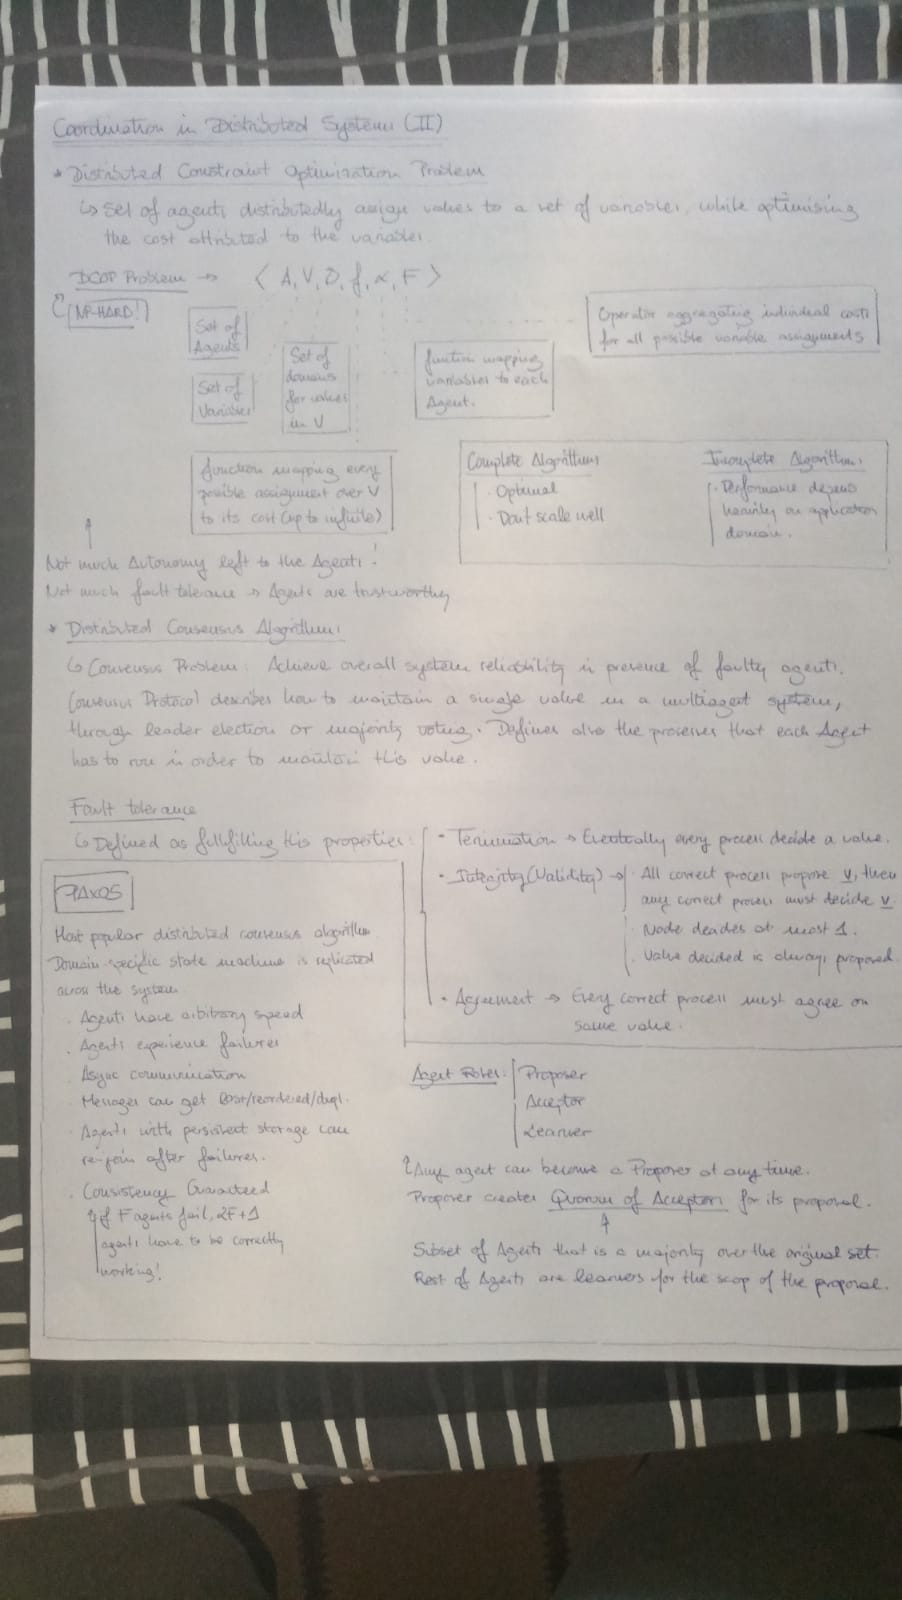 Coordination in Distributed Systems (II)
* Distributed Constraint Optimization Problem
↳ Set of agents distributedly assign values to a set of variables, while optimising
the cost attributed to the variables.
DCOP Problem → < A, V, D, f, α, F >
NP-HARD!
Set of
Agents
Set of
Variables
Set of
domains
for values
in V
function mapping
variables to each
Agent.
Operator aggregating individual costs
for all possible variable assignments
function mapping every
possible assignment over V
to its cost (up to infinite)
Complete Algorithms
· Optimal
· Dont scale well
Incomplete Algorithms
· Performance depens
heavily on application
domain.
Not much Autonomy left to the Agents!
Not much fault tolerance → Agents are trustworthy
* Distributed Consensus Algorithms
↳ Consensus Problem: Achieve overall system reliability in presence of faulty agents.
Consensus Protocol describes how to maintain a single value in a multiagent system,
through leader election or majority voting. Defines also the processes that each Agent
has to run in order to maintain this value.
Fault tolerance
↳ Defined as fullfilling this properties:
· Termination → Eventually every process decide a value.
· Integrity (Validity) → · All correct process propose v, then
any correct process must decide v.
· Node decides at most 1.
· Value decided is always proposed.
· Agreement → Every correct process must agree on
same value.
PAXOS
Most popular distributed consensus algorithm
Domain-specific state machine is replicated
across the system
· Agents have arbitrary speed
· Agents experience failures
· Async communication
· Messages can get lost/reordered/dupl.
· Agents with persistent storage can
re-join after failures.
· Consistency Guaranteed
if F agents fail, 2F+1
agents have to be correctly
working!
Agent Roles:
Proposer
Acceptor
Learner
Any agent can become a Proposer at any time.
Proposer creates Quorum of Acceptors for its proposal.
Subset of Agents that is a majority over the original set.
Rest of Agents are learners for the scop of the proposal.